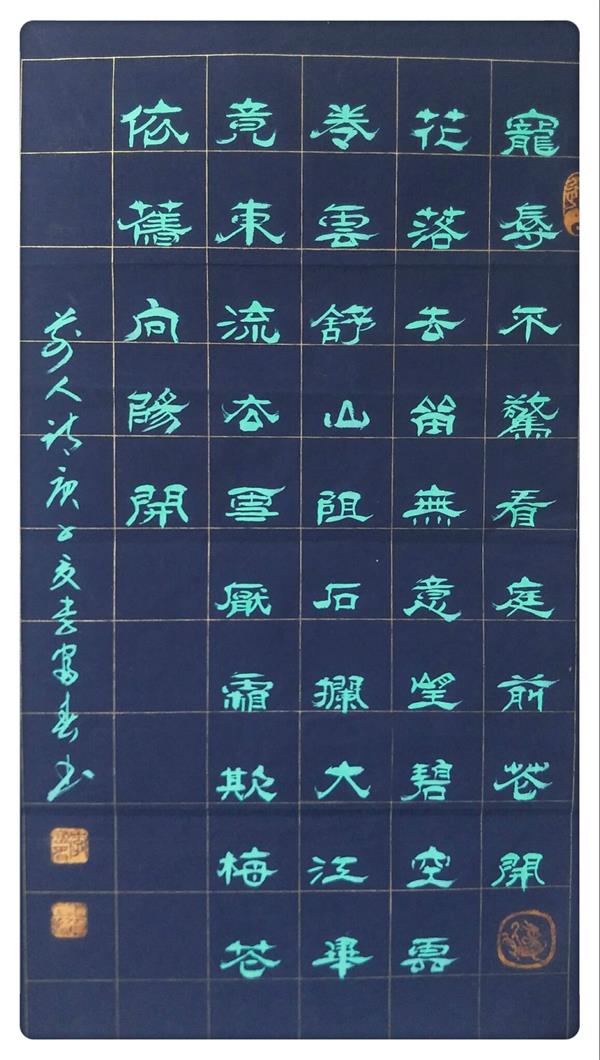 寵辱不驚看庭前花開
花落去留無意望碧空雲
卷雲舒山阻石攔大江畢
竟東流去雪厭霜欺梅花
依舊向陽開
前人詩庚子夏李春书